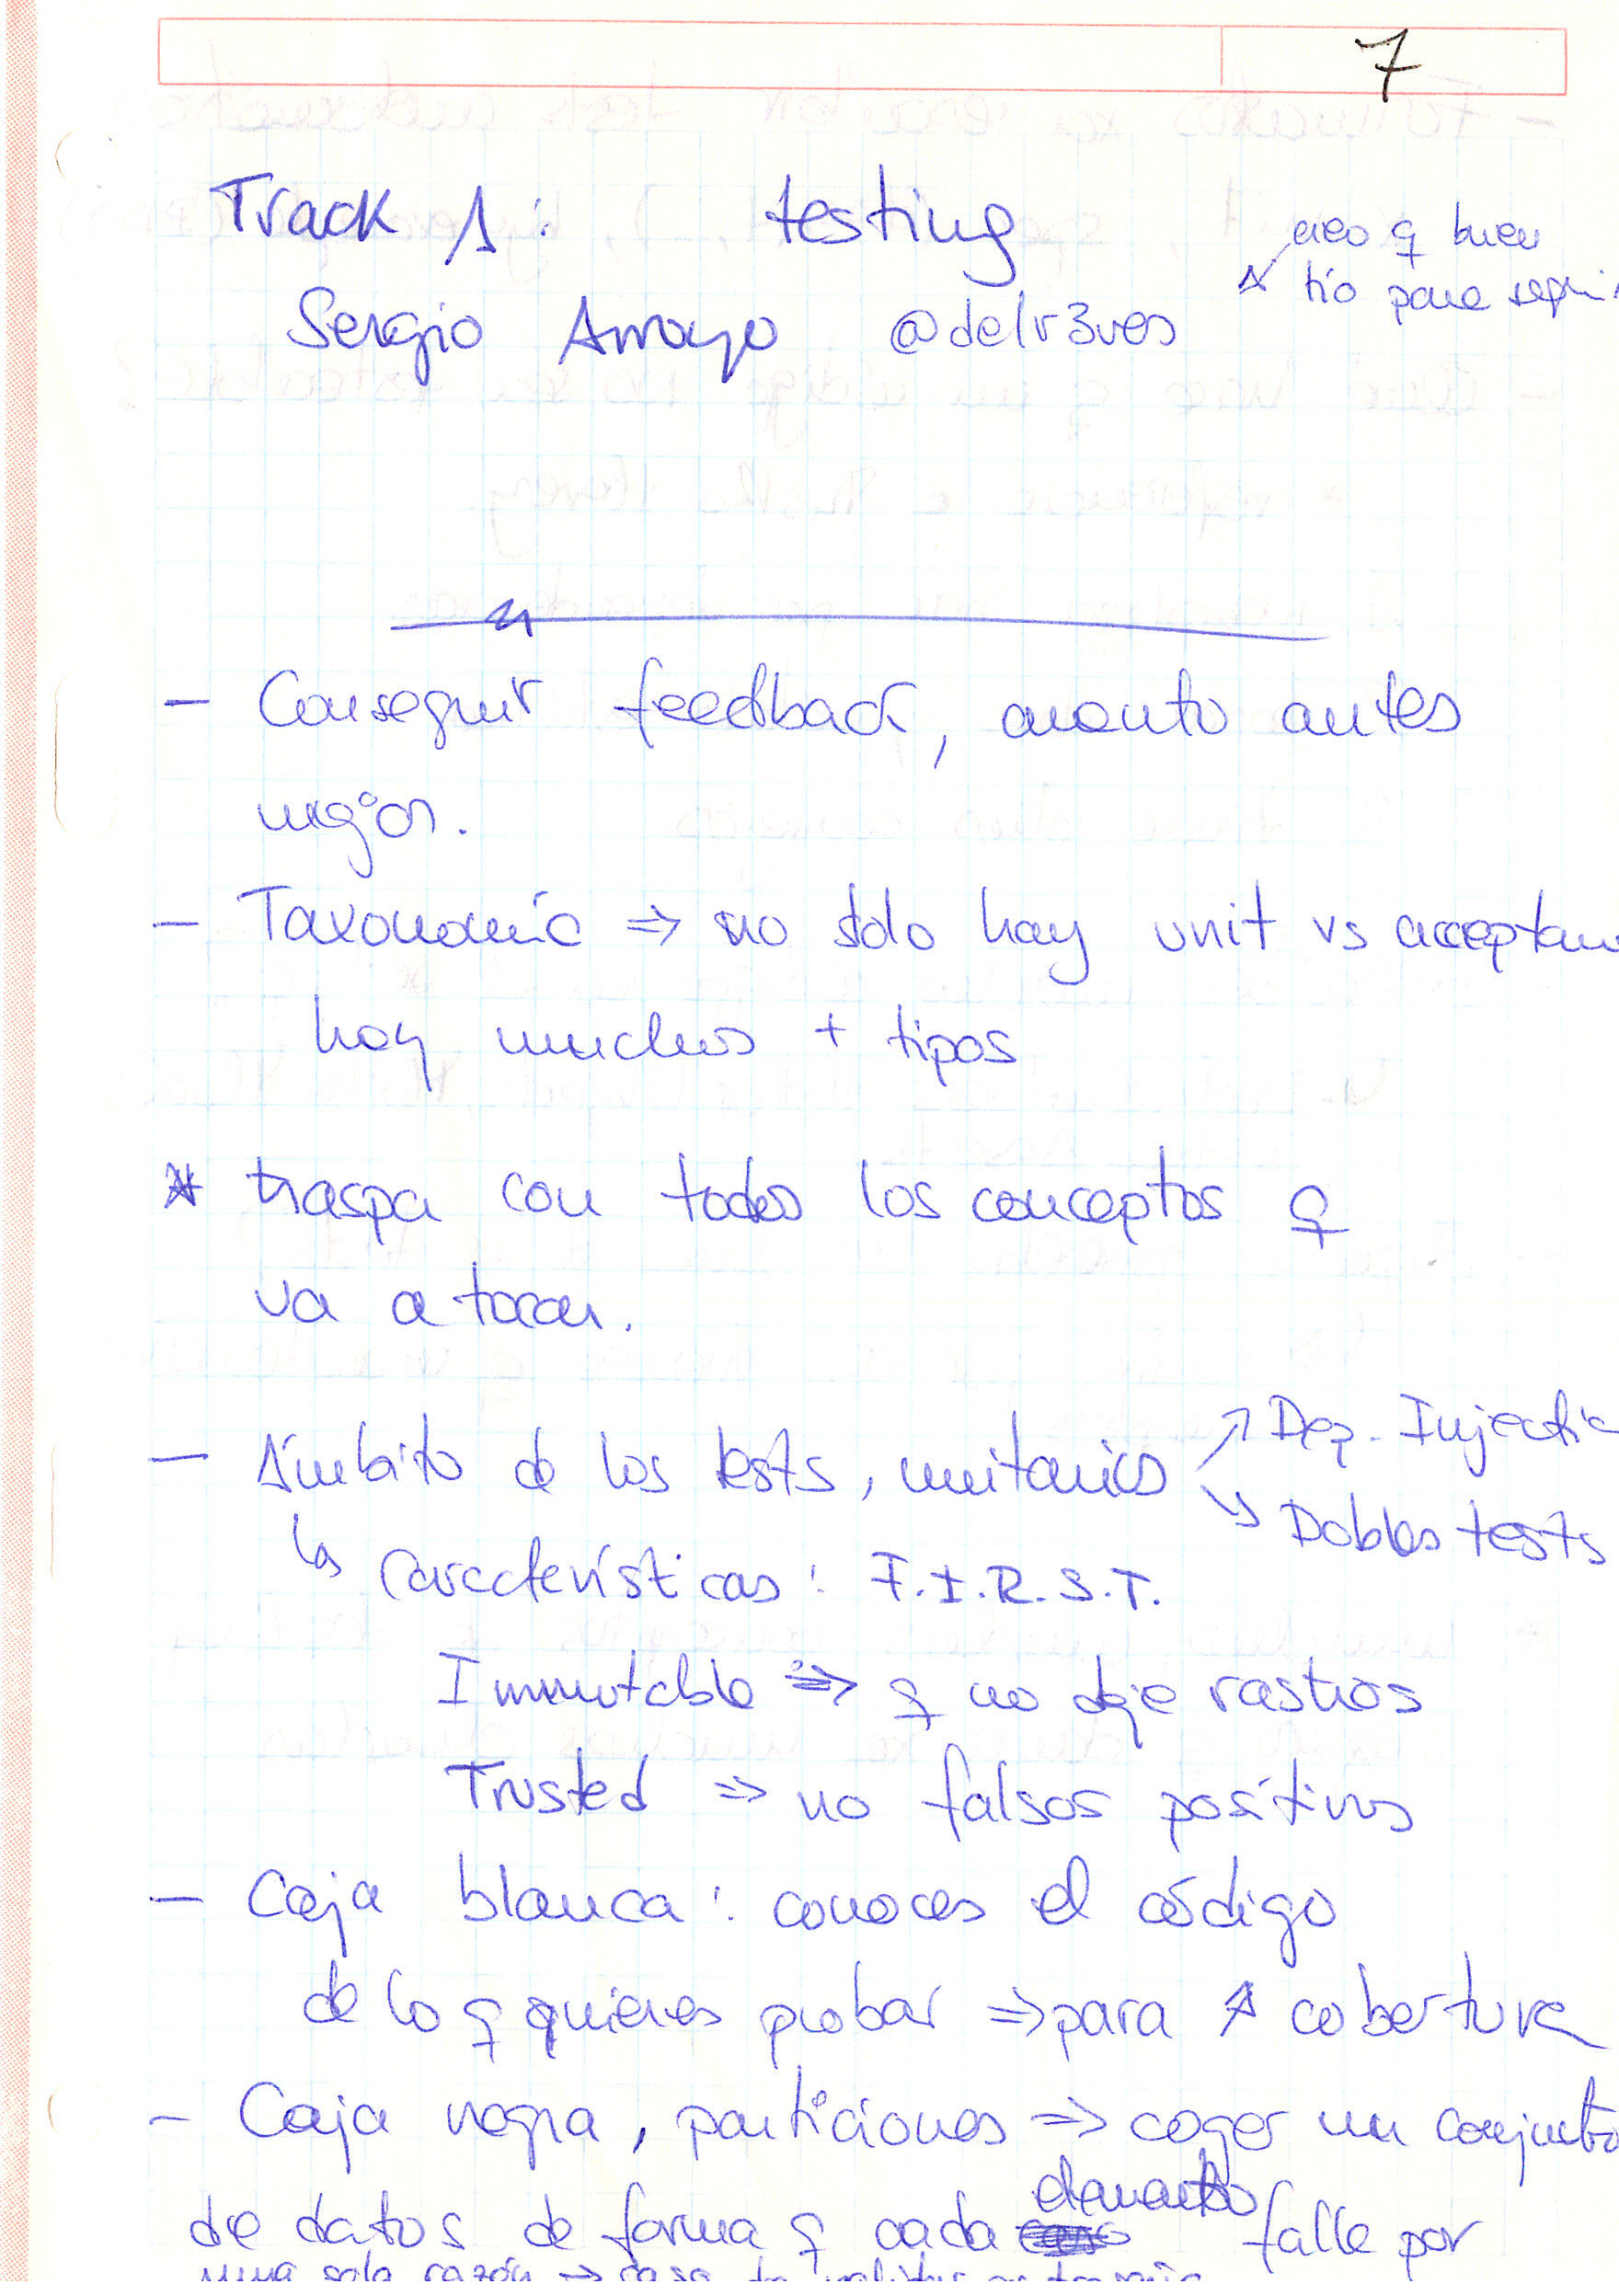 7
Track 1: testing
creo q buen
Sergio Arroyo @delr3ves
tío para seguir
- Conseguir feedback, cuanto antes
mejor.
- Taxonomía => no solo hay unit vs acceptan
hay muchos + tipos
* traspa con todos los conceptos q
va a tocar.
- Ámbito de los tests, unitarios
Dep. Injectio
Dobles tests
↳ Características: F.I.R.S.T.
Immutable => q no deje rastros
Trusted => no falsos positivos
- Caja blanca: conoces el código
de lo q quieres probar => para ↑ cobertura
- Caja negra, particiones => coger un conjunto
de datos de forma q cada elemento falle por
una sola razón =>